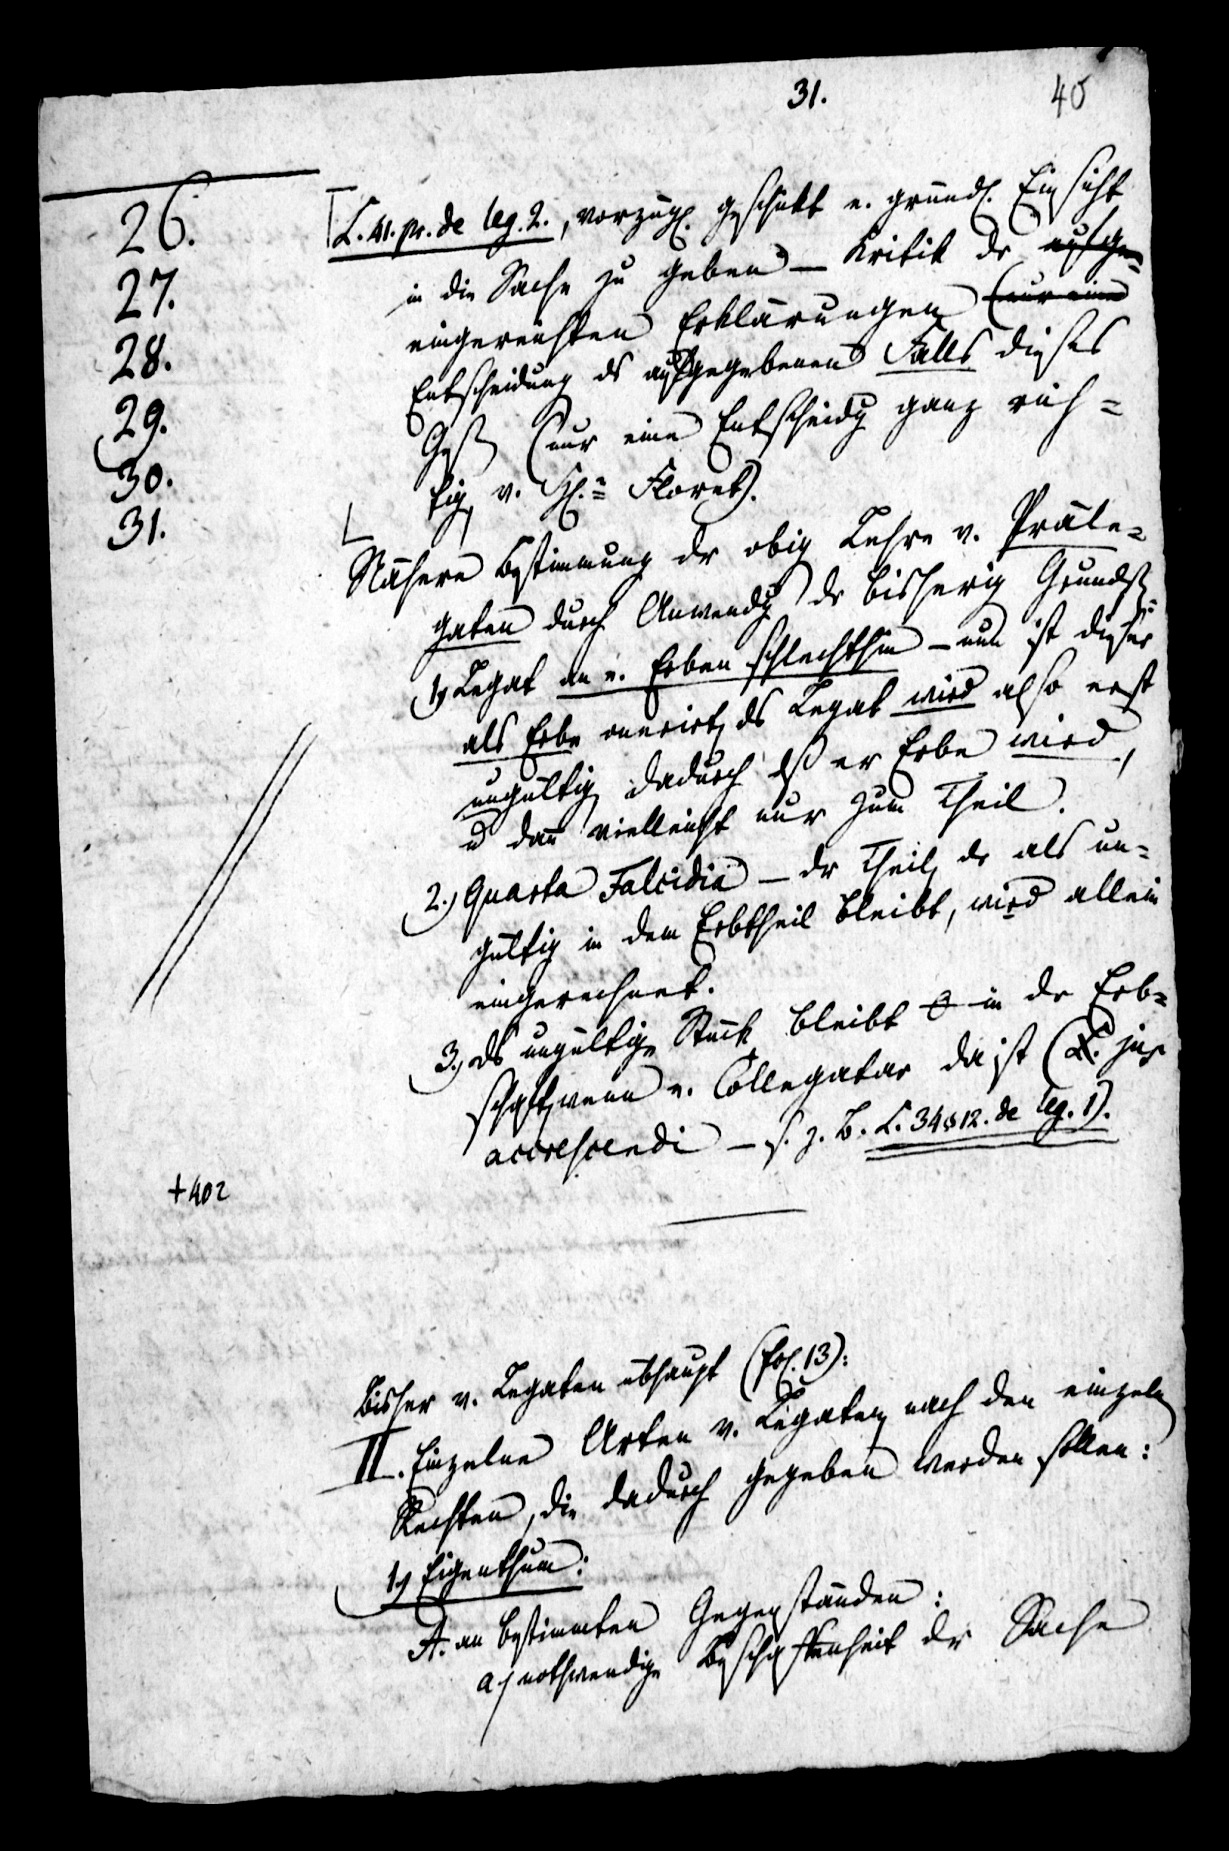 31.
40
26.
27.
28.
29.
30.
31.
L. 41. pr. de leg. 2., vorzügl. geschickt e. gründl. Einsicht
in die Sache zu geben — Kritik dr aufge-
eingereichten Erklärungen (nur eine
Entscheidung ds aufgegebenen Falls dieses
(nur eine Entscheidg ganz rich=
tig, v. Floret).
Nähere Bestimmung dr obig Lehre v. Präle=
gaten durch Anwendg dr bisherig Grundsz
1) Legat an e. Erben schlechthin – nun ist dieser
als Erbe onerirt, ds Legat wird also erst
ungültig dadurch dß er Erbe wird,
u dañ vielleicht nur zum Theil.
2.) Quarta Falcidia – dr Theil, dr als un=
gültig in dem Erbtheil bleibt, wird allein
eingerechnet.
3.) ds ungültige Stück bleibt in dr Erb=
schaft, wenn e. Collegatar da ist (jus
accrescendi – s. z. B. L. 34 § 12. de leg. 1).
+402
Bisher v. Legaten übhaupt (fol. 13):
II. Einzelne Arten v. Legaten, nach den einzeln
Rechten, die dadurch gegeben werden sollen:
1) Eigenthum:
A. an bestimmten Gegenständen:
a) nothwendige Beschaffenheit dr Sache